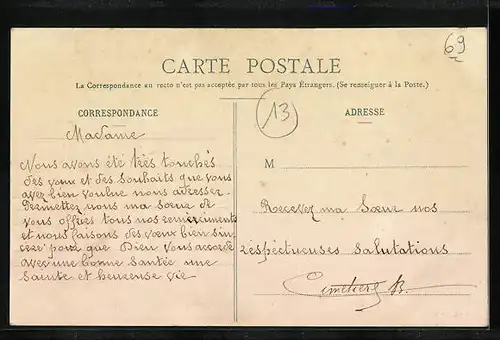 69
CARTE POSTALE
La Correspondance au recto n'est pas acceptée par tous les Pays Étrangers. (Se renseigner à la Poste.)
13
CORRESPONDANCE
Madame
Nous avons été très touchés
des vœux et des souhaits que vous
avez bien voulue nous adresser.
Permettez nous ma sœur de
vous offrir tous nos remerciments
et nous faisons des vœux bien sin,
cere pour que Dieu vous accorde
avec une bonne santée une
sainte et heureuse vie
ADRESSE
M
Recevez ma Sœur nos
respectueuses salutations
B.